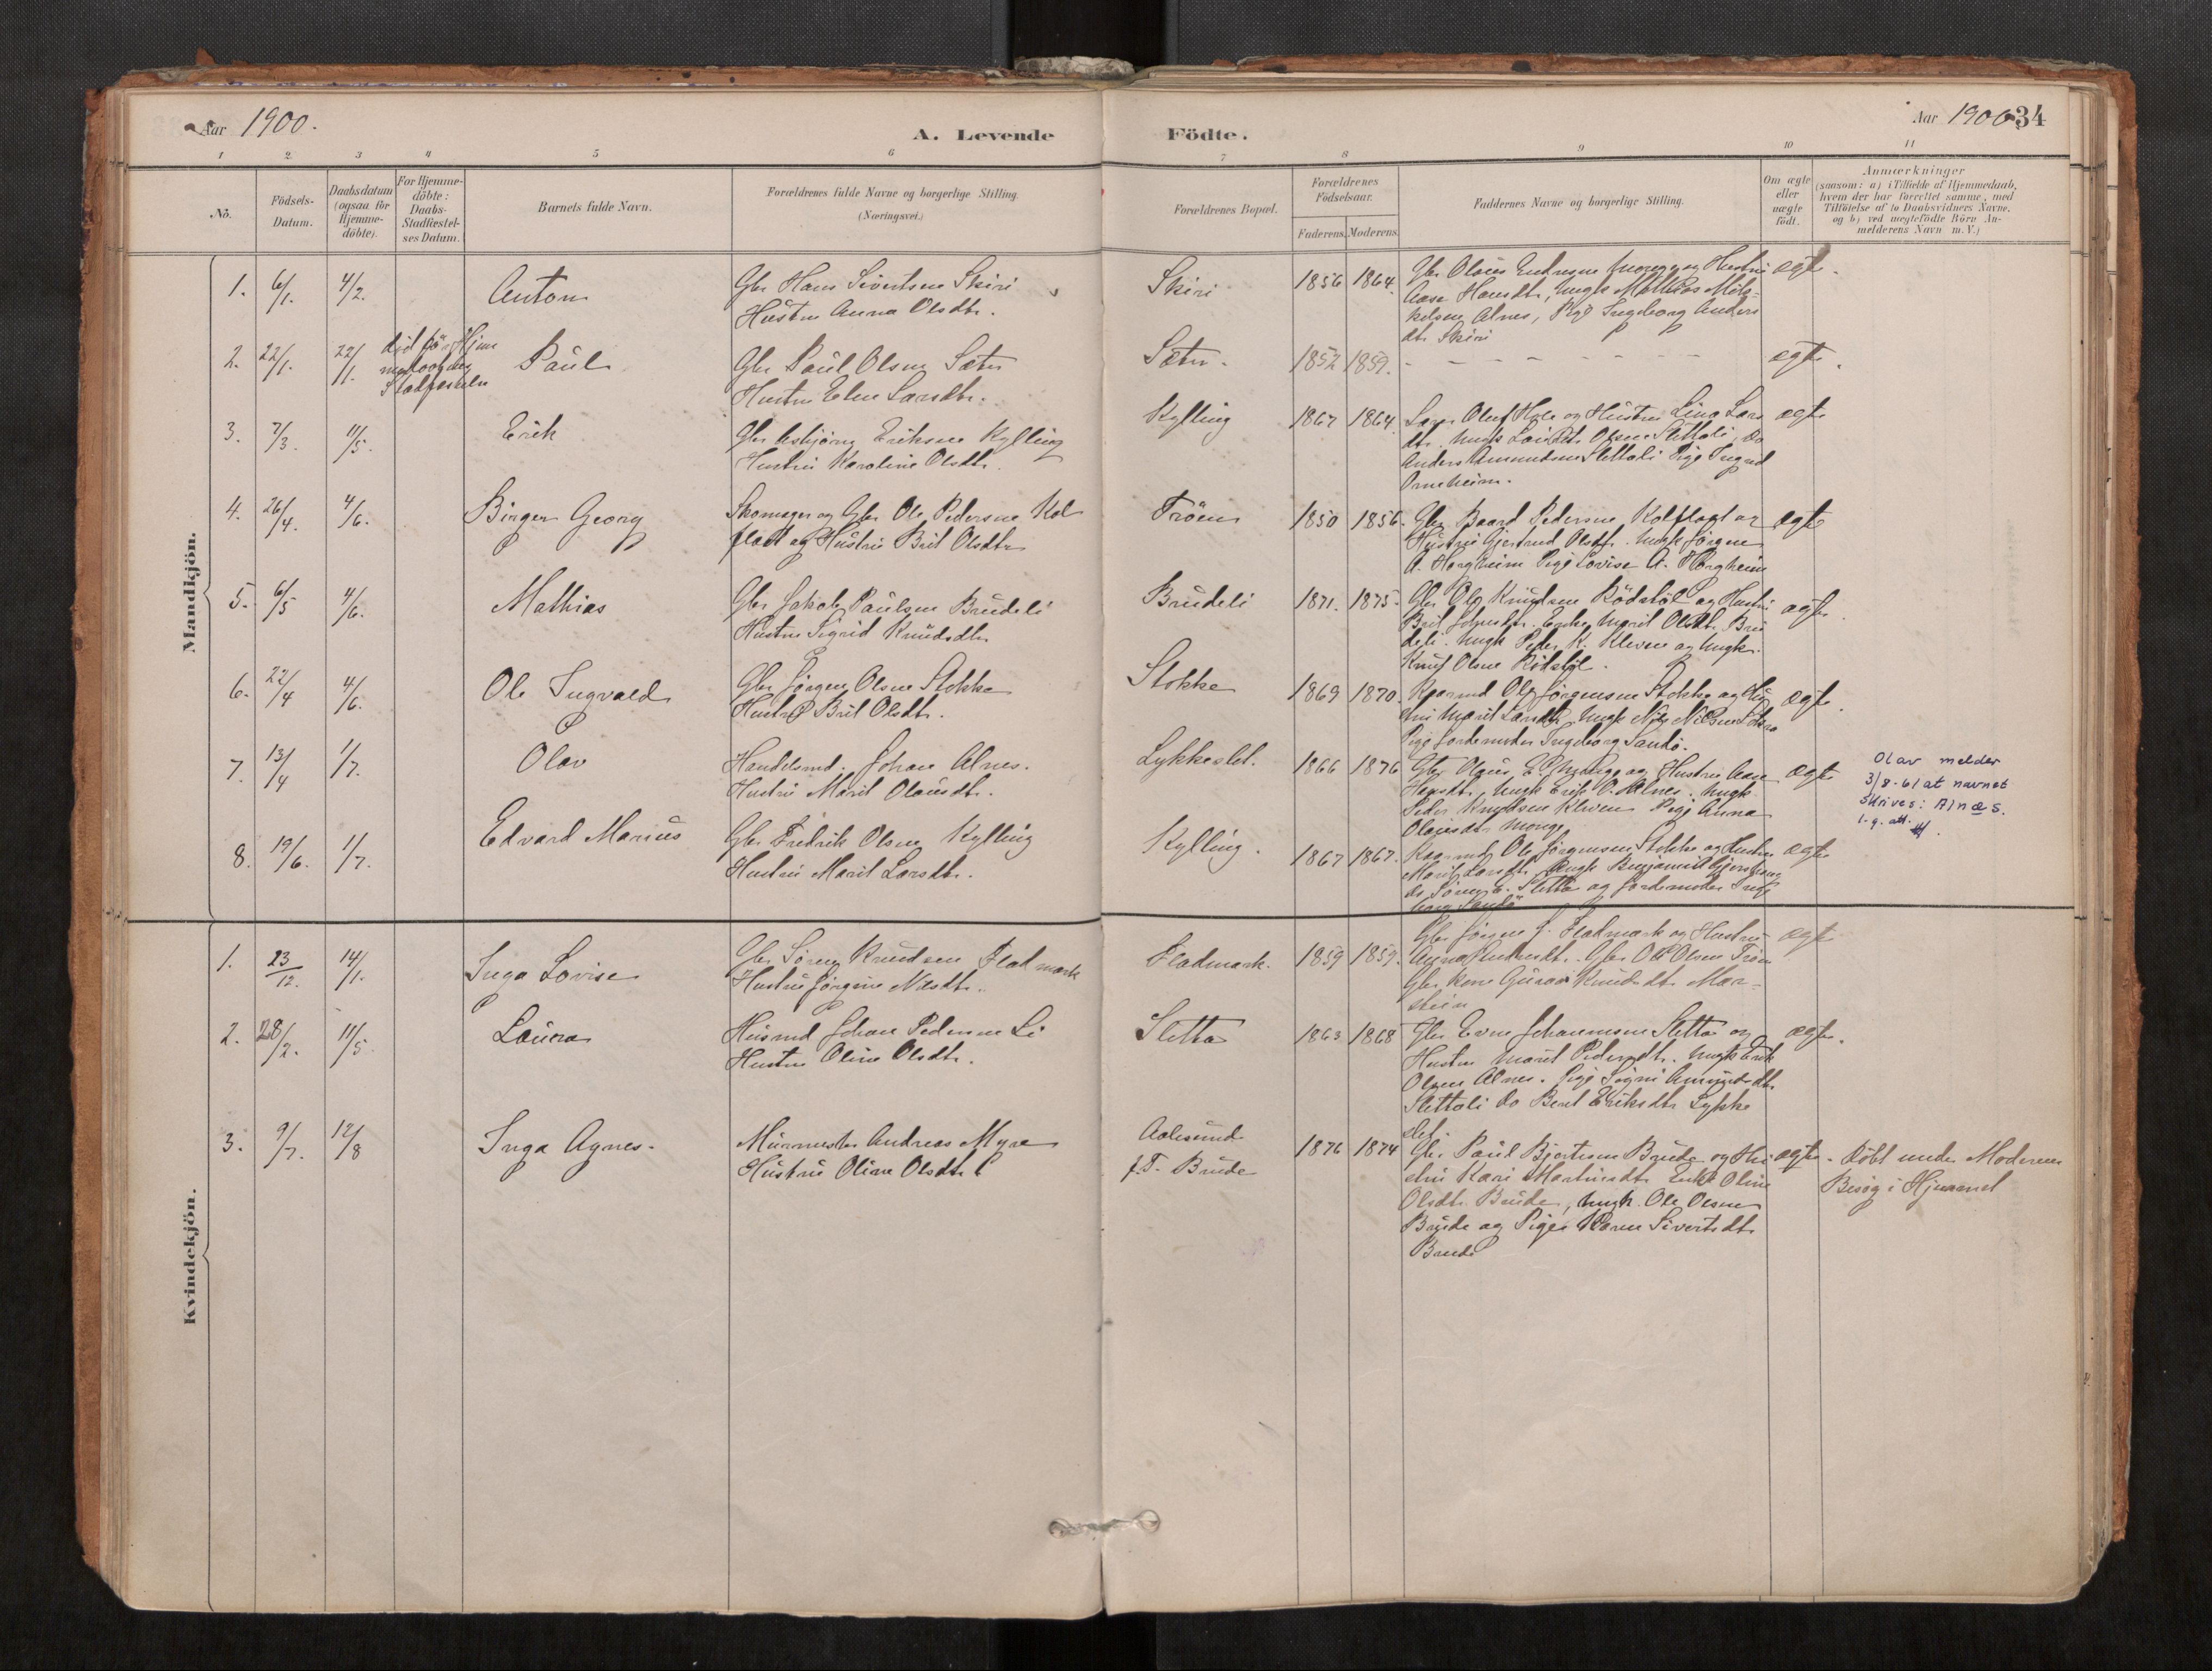 Aar 1900.
A. Levende Födte.
Aar 1900 34
1 2 3 4 5 6 7 8 9 10 11
No.
Födsels-
Datum.
Daabsdatum
(ogsaa for
Hjemme-
döbte).
For Hjemme-
döbte:
Daabs-
Stadfæstel-
ses Datum.
Barnets fulde Navn.
Forældrenes fulde Navne og borgerlige Stilling.
(Næringsvei.)
Forældrenes Bopæl.
Forældrenes
Födselsaar.
Faderens. Moderens.
Faddernes Navne og borgerlige Stilling.
Om ægte
eller
uægte
födt.
Anmærkninger
(saasom: a) i Tilfælde af Hjemmedaab,
hvem der har forrettet samme, med
Tilföielse af to Daabsvidners Navne,
og b) ved uægtefödte Börn An-
melderens Navn m. V.)
Mandkjön.
1. 6/1. 4/2. Anton
Gbr Hans Sivertsen Skiri
Hustru Anna Olsdtr.
Skiri 1856 1864.
Gbr Olaus Endresen og Hustru
Aase Hansdtr, Ungk Mathias Mik-
kelsen Alnes, Pige Ingeborg Anders
dtr Skiri
ægte.
2. 22/1. 22/1. död för Hjem
Paul
Gbr Paul Olsen Sæter
Hustru Elen Larsdtr.
Sæter. 1852 1859. - - - - - - - -
ægte.
3. 7/3. 11/5. Erik
Gbr Asbjörn Eriksen Kylling
Hustru Karoline Olsdtr.
Kylling 1867 1864.
Oluf Hole og Hustru Lina Lars
dtr. Ungk Olsen Slettali, do
Anders Amundsen Slettali Pige Ingrid
Ormeheim.
ægte
4. 26/4. 4/6. Birger Georg
Skomager og Gbr Ole Pedersen Kol
flaat og Hustru Brit Olsdtr
Tröen 1850 1856.
Gbr Baard Pedersen Kolflaat og
Hustru Gjertrud Olsdtr. Ungk Jörgen
A. Horgheim Pige Lovise A. Horgheim
ægte
5. 6/5 4/6. Mathias
Gbr Jakob Paulsen Brudeli
Hustru Sigrid Knudsdtr
Brudeli 1871. 1875.
Gbr Ole Knudsen Rödstöl og Hustru
Brit Enke Marit Olsdtr Bru
deli. Ungk Peder K. Kleven og Ungk.
Knut Olsen Rödstöl.
ægte.
6. 22/4 4/6. Ole Ingvald
Gbr Jörgen Olsen Stokke
Hustru Brit Olsdtr.
Stokke 1869 1870.
Kaarmd Ole Jörgensen Stokke og Hu
stru Marit Larsdtr, Ungk Nils Nilsen
Pige Jordemoder Ingeborg Sandö.
ægte.
7. 13/4 1/7. Olav
Handelsmd. Johan Alnes.
Hustru Marit Olausdtr.
Lykkeslet. 1866 1876
Gbr Olaus E. Monge og Hustru Aase
Hansdtr, Ungk Erik O. Alnes. Ungk
Peder Knudsen Kleven Pige Anna
Olausdtr Monge
ægte
Olav melder
3/8-61 at navnet
skrives: Alnæs.
8. 19/6. 1/7. Edvard Marius
Gbr Fredrik Olsen Kylling
Hustru Marit Larsdtr.
Kylling. 1867 1867.
Kaarmd Ole Jörgensen Stokke og Hustru
Marit Larsdtr, Ungk Benjamin
do Sören E. Sletta og Jordemoder Inge
borg Sandö
ægte
Kvindekjön.
1. 23/12. 14/1. Inga Lovise
Gbr Sören Knudsen Fladmark
Hustru Jörgine Nilsdtr.
Fladmark. 1859 1859.
Gbr Jörgen J. Fladmark og Hustru
Anna Gbr Ole Olsen Tröen
Gbr kone Guroi Knudsdtr Mar-
stein
ægte
2. 28/2. 11/5. Laura
Husmd Johan Pedersen Li
Hustru Oline Olsdtr.
Sletta 1863 1868
Gbr Even Johannesen Sletta og
Hustru Marit Pedersdtr. Ungk Erik
Olsen Alnes. Pige Signi Amundsdtr
Slettali do Berit Eriksdtr Lykke
slet.
ægte.
3. 9/7. 12/8 Inga Agnes.
Murmester Andreas Myre
Hustru Oline Olsdtr
Aalesund
f.T. Brude 1876 1874
Gbr Paul Bjertsen Brude og Hu
stru Kari Martinsdtr Enke Oline
Olsdtr Brude, Ungk. Ole Olsen
Brude og Pige Karen Sivertsdtr
Brude
ægte. Döbt under Moderens
Besög i Hjemmet